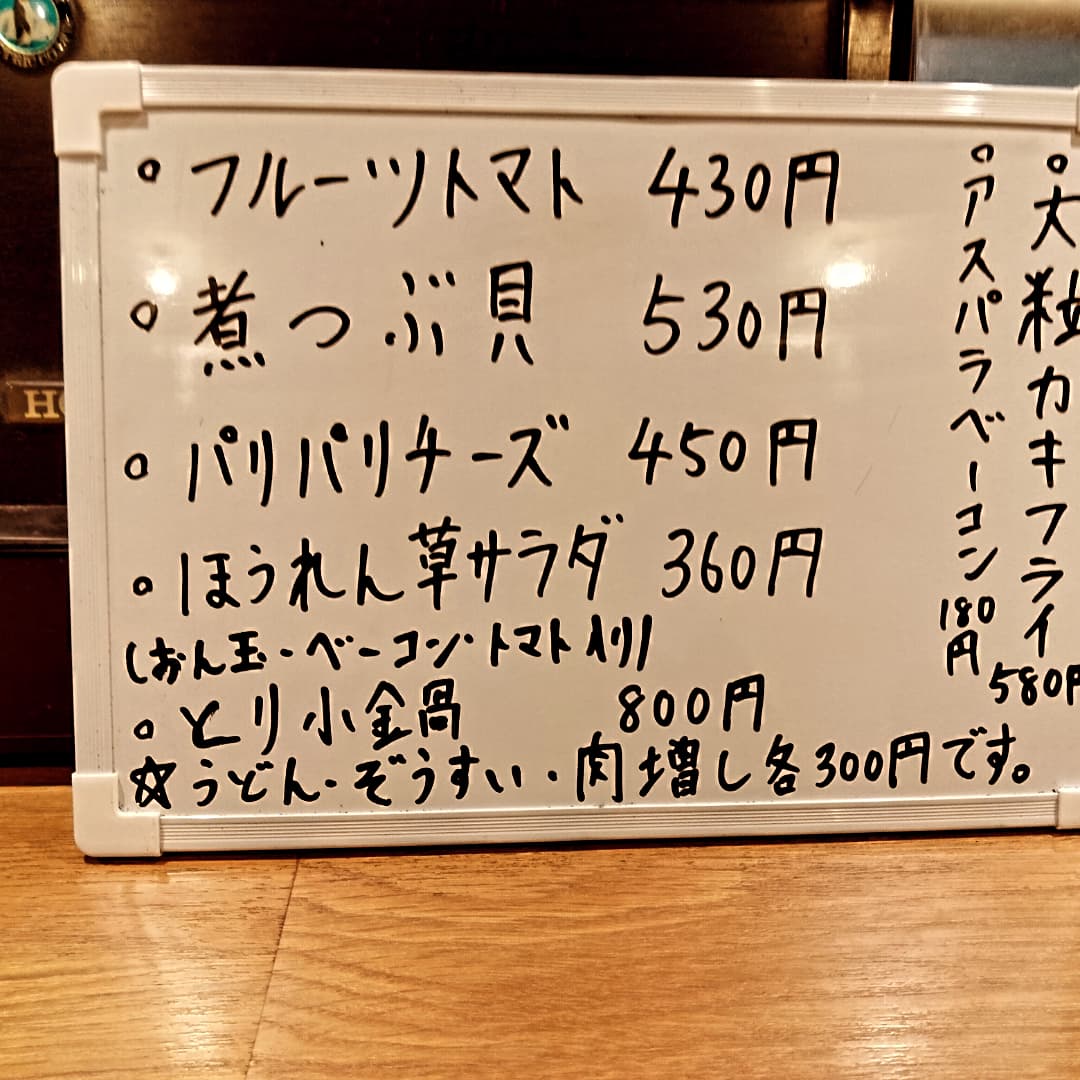 ○ フルーツトマト 430円
○ 煮つぶ貝 530円
○ パリパリチーズ 450円
○ ほうれん草サラダ 360円
(おん玉・ベーコン・トマト入り)
○ とり小鍋 800円
☆うどん・ぞうすい・肉増し各300円です。
○大粒カキフライ 580円
○アスパラベーコン 180円